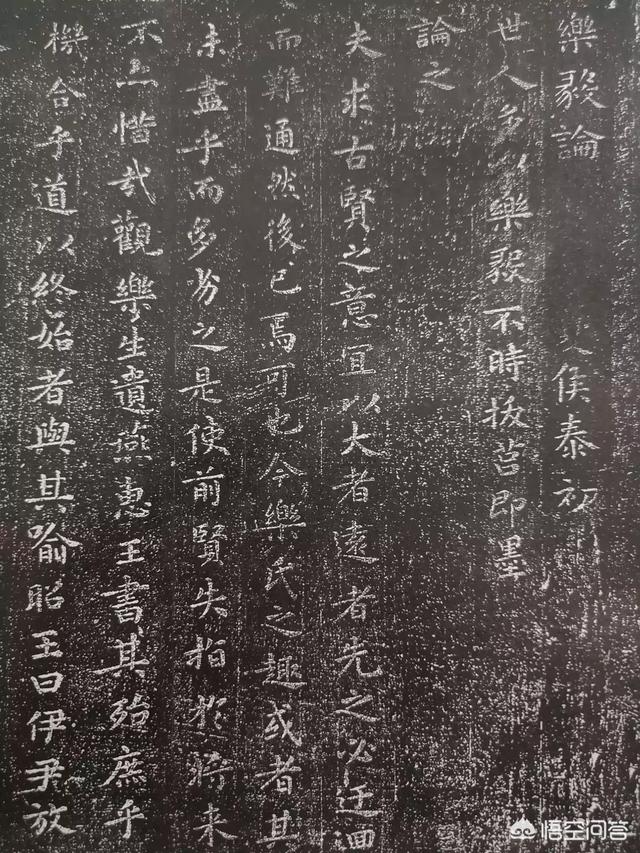 樂毅論 侯泰初
世人多以樂毅不時拔莒即墨
論之
夫求古賢之意宜以大者遠者先之必迂迴
而難通然後已焉可也今樂氏之趣或者其
未盡乎而多劣之是使前賢失指於將来
不亦惜哉觀樂生遺燕惠王書其殆庶乎
機合乎道以終始者與其喻昭王曰伊尹放
悟空问答